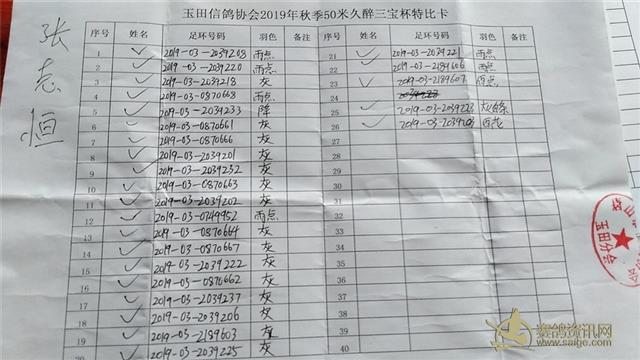 玉田信鸽协会2019年秋季50米久醉三宝杯特比卡
张志恒
序号 姓名 足环号码 羽色 备注 序号 姓名 足环号码 羽色 备注
1 2019-03-2039208 雨点 21 2019-03-2039221 雨点
2 2019-03-2039220 雨点 22 2019-03-2189606 雨点
3 2019-03-2039218 灰 23 2019-03-2189607 雨点
4 2019-03-0870668 雨点 24
5 2019-03-2039233 降 25 2019-03-2039223
6 2019-03-0870661 灰 26 2019-03-2039203
7 2019-03-0870666 灰 27
8 2019-03-2039201 灰 28
9 2019-03-2039232 灰 29
10 2019-03-0870663 灰 30
11 2019-03-2039202 灰 31
12 2019-03-0749952 雨点 32
13 2019-03-0870664 灰 33
14 2019-03-0870667 灰 34
15 2019-03-2039222 灰 35
16 2019-03-0870662 灰 36
17 2019-03-2039237 灰 37
18 2019-03-2039206 灰 38
19 2019-03-2189603 灰 39
20 2019-03-2039225 灰 40
玉田分会
赛鸽资讯网
www.saige.com